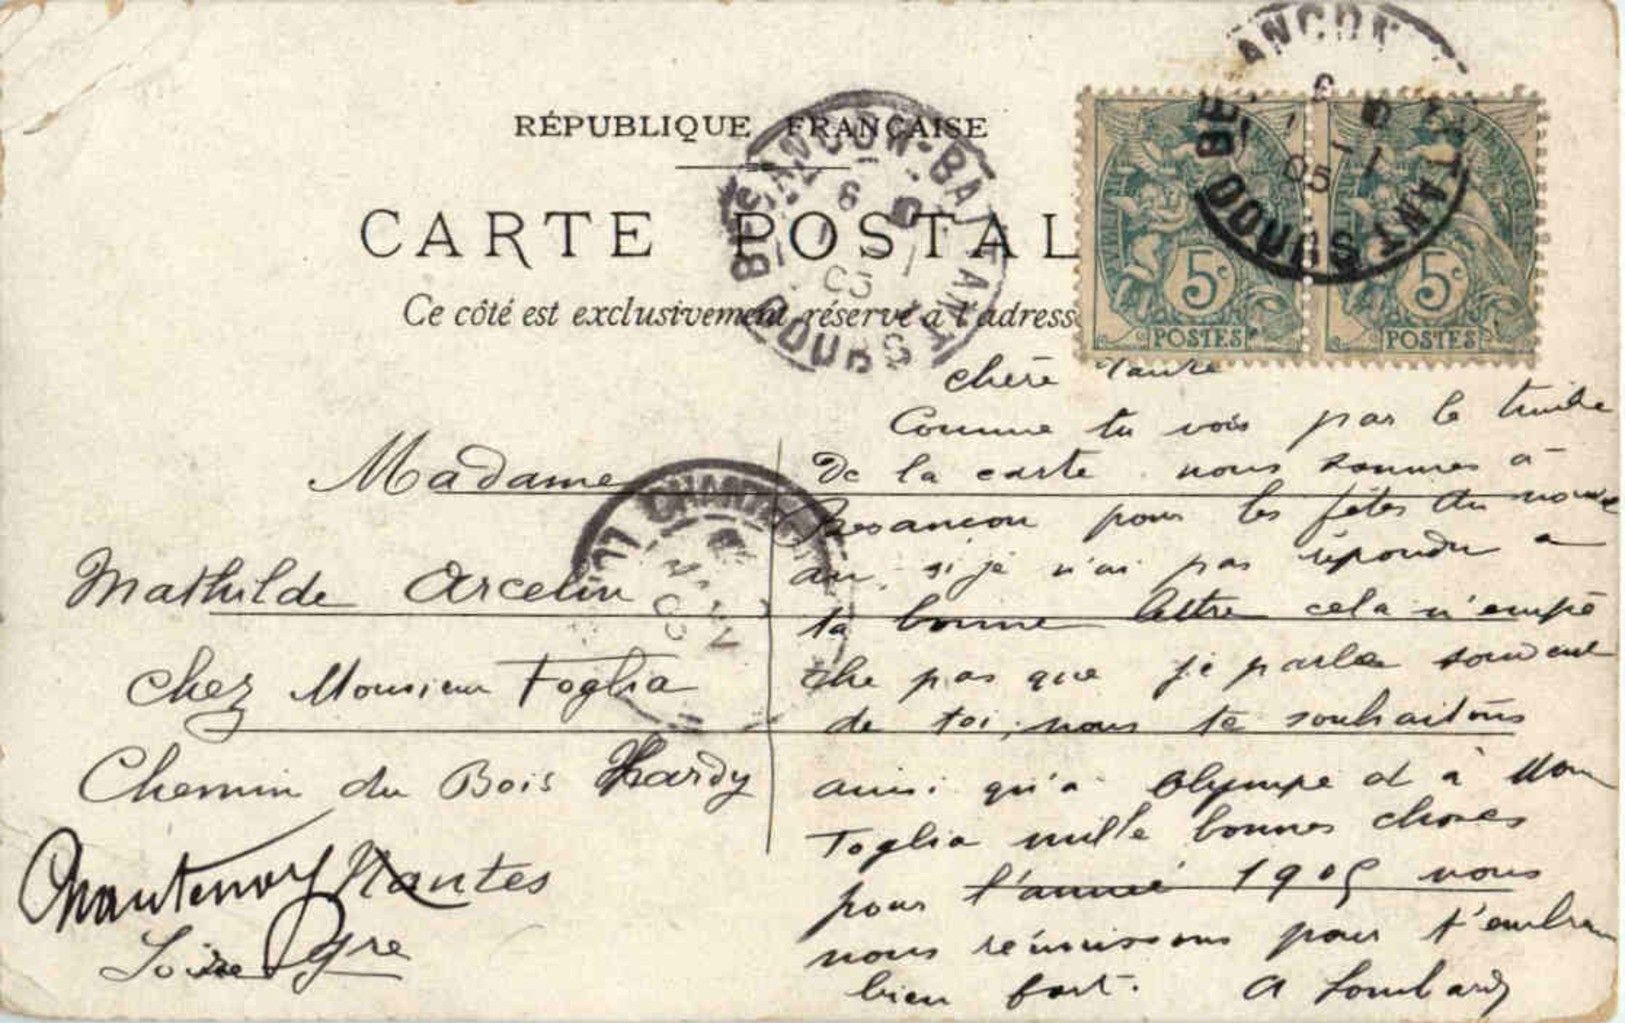 RÉPUBLIQUE FRANÇAISE
CARTE POSTAL
Ce côté est exclusivement réservé à l'adress
BESANÇON-BATTANT
DOUBS
6
1
05
ANÇON
TTANT
DOUBS
05
5c
POSTES
5c
POSTES
CHANTENAY
Madame
Mathilde Arcelin
Chez Monsieur Foglia
Chemin du Bois Hardy
Chantenay Nantes
Loire Fre
chère tante
Comme tu vois par le timbre
De la carte nous sommes à
Besançon pour les fêtes du nouvel
an, si je n'ai pas répondu a
ta bonne lettre cela n'empê
che pas que je parle souvent
de toi, nous te souhaitons
ainsi qu'à Olympe et à Mon
Foglia mille bonnes choses
pour l'année 1905 nous
nous réunissons pour t'embrasser
bien fort. A Lombardy